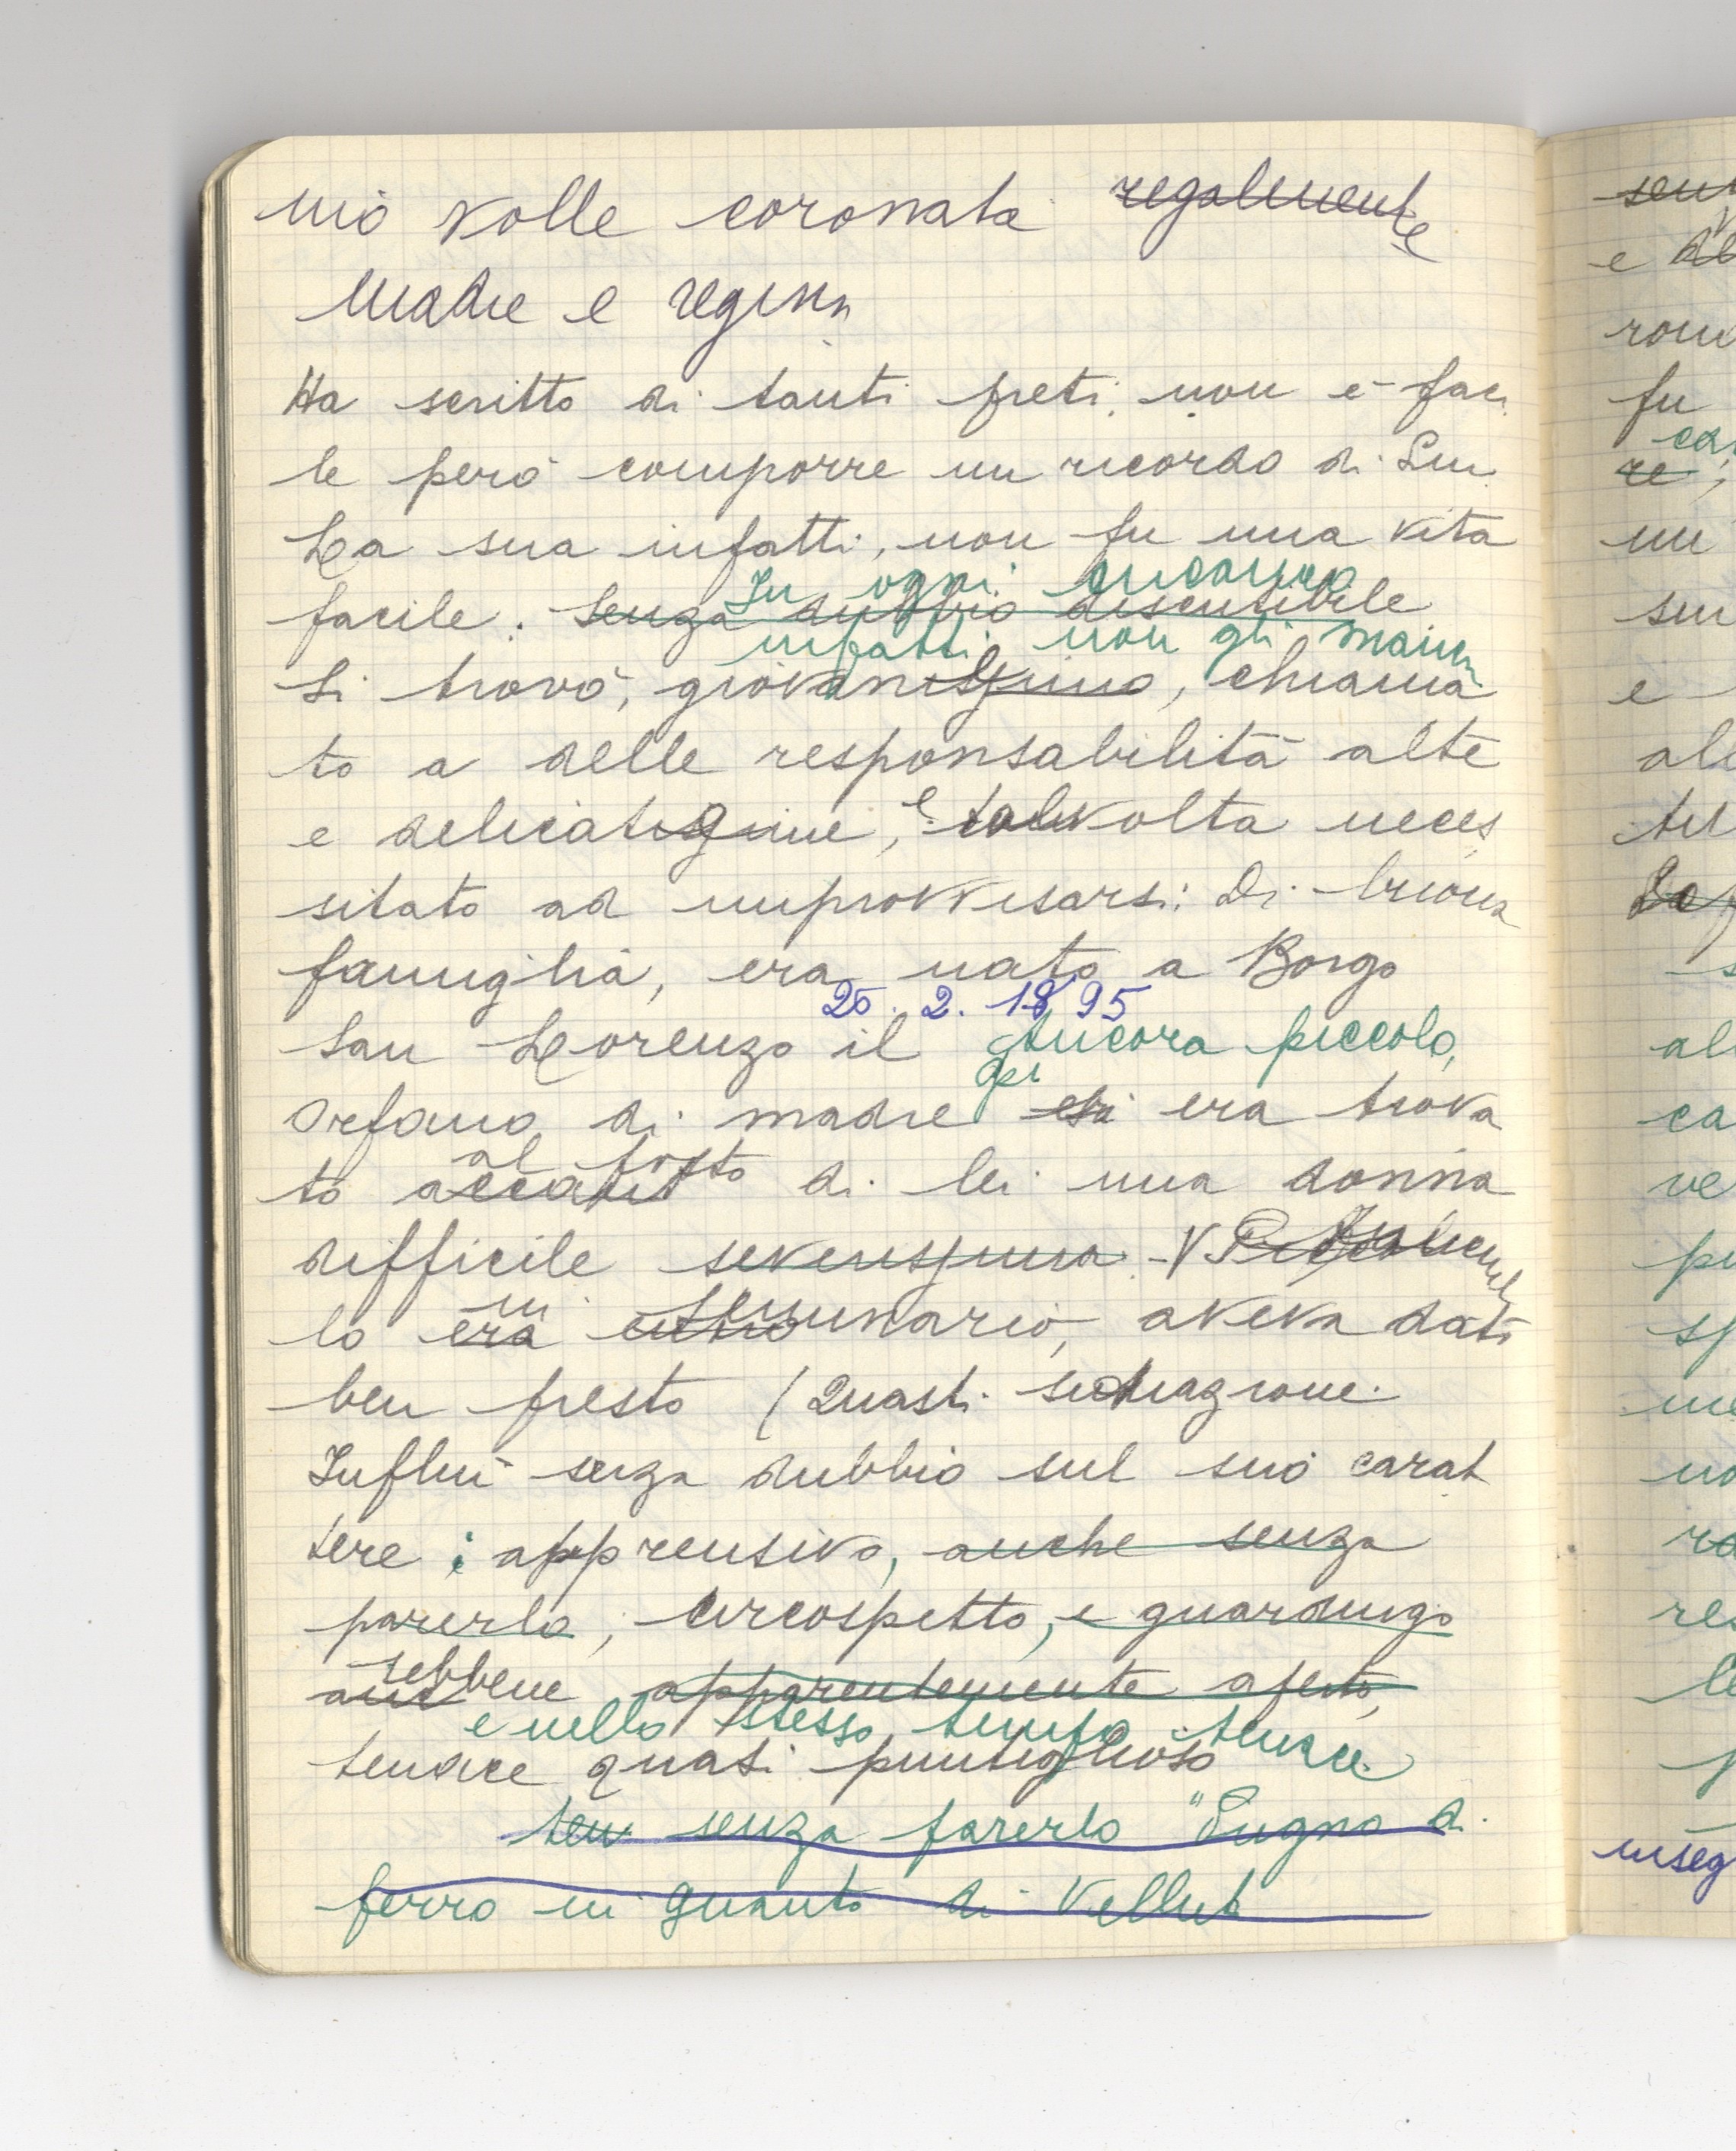 mio volle coronata regalmente
Madre e regina
Ha scritto di tanti preti, non è faci
le però comporre un ricordo di Lui.
La sua infatti, non fu una vita
In ogni
facile. Senza dubbio discutibile
infatti non gli
Si trovò, giovanissimo, chiama
to a delle responsabilità alte
e delicatissime, e talvolta neces
sitato ad improvvisarsi: Di buona
famiglia, era nato a Borgo
25. 2. 1895
San Lorenzo il Ancora piccolo,
orfano di madre si era trova
al posto
to accanto di lei una donna
difficile severissima
in
lo era seminario, aveva dati
ben presto (Quasi
Influì senza dubbio sul suo carat
tere: apprensivo, anche senza
parerlo, circospetto, e guardingo
sebbene apparentemente aperto,
e nello stesso tempo tenace
tenace quasi puntiglioso
ten senza parerlo "Pugno di
ferro in guanto di Velluto
sen
e
rom
fu
re,
un
su
e
al
ca
ve
pu
sp
me
no
ra
res
le
p
inseg